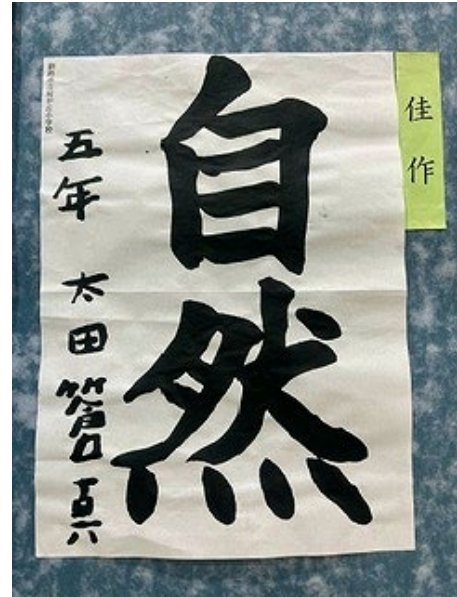 佳作
自然
五年 太田